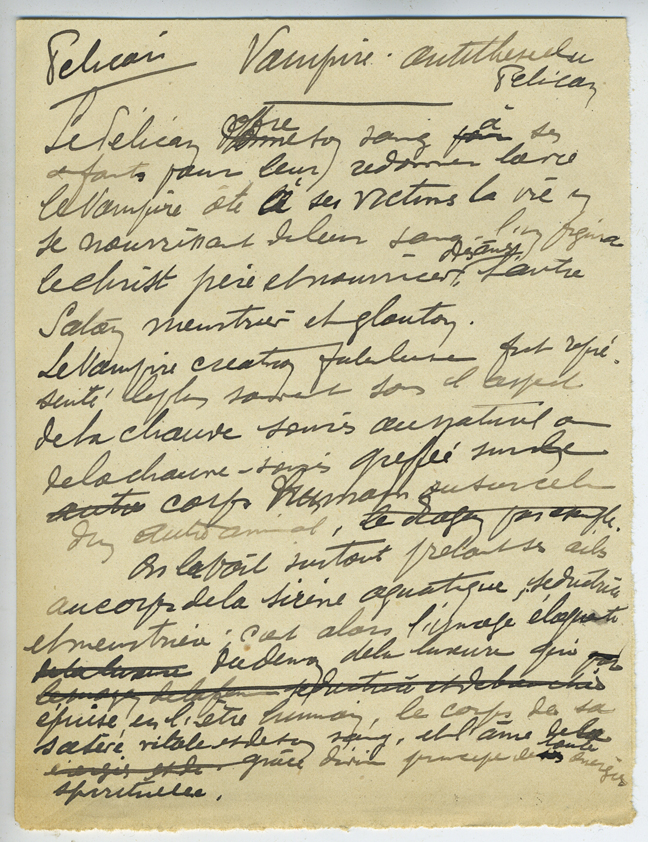 Pelican Vampire. antithese du
Pelican
Le Pélican offre son sang à ses
enfants pour leur redonner la vie
le Vampire ôte à ses victimes la vie en
se nourrissant de leur sang. l'un figure
le Christ père et nourricier des âmes, l'autre
Satan meurtrier et glouton.
Le Vampire creation fabuleuse fut repré-
senté le plus souvent sous l'aspect
de la chauve souris au naturel ou
de la chauve-souris greffée sur le
autre corps humain ou sur celui
d'un autre animal, le dragon par exemple.
On la voit surtout prêtant ses ailes
au corps de la sirène aquatique, séductrice
et meurtrière; c'est alors l'image éloquente
de la luxure du démon de la luxure qui
séductrice et debauchée
épuise, en l'être humain, le corps de sa
vitale et de son sang, et l'âme de la
grâce divine principe de toute énergie
spirituelle.